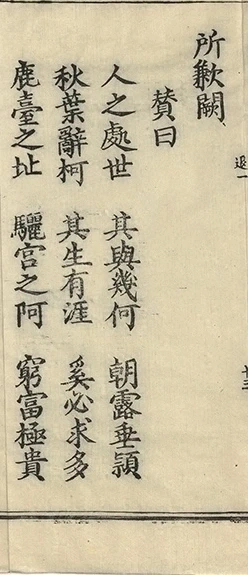 所歉闕
贊曰
人之處世　其與幾何　朝露垂穎
秋葉辭柯　其生有涯　奚必求多
鹿臺之址　驪宮之阿　窮富極貴